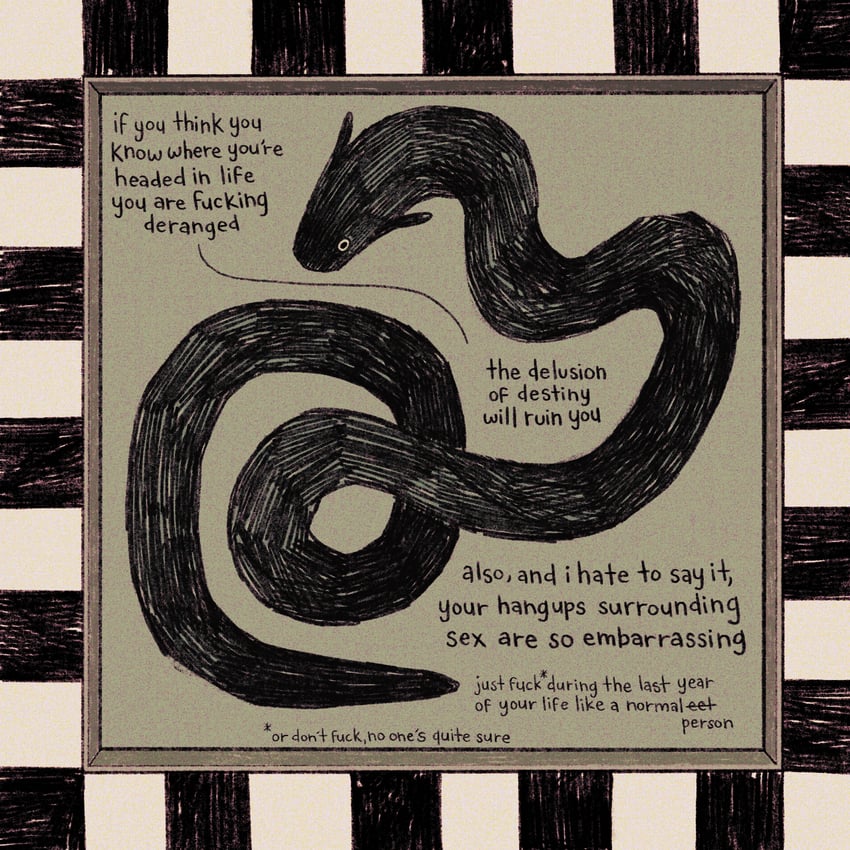 if you think you
know where you're
headed in life
you are fucking
deranged
the delusion
of destiny
will ruin you
also, and i hate to say it,
your hangups surrounding
sex are so embarrassing
just fuck*during the last year
of your life like a normal eet
person
*or don't fuck, no one's quite sure